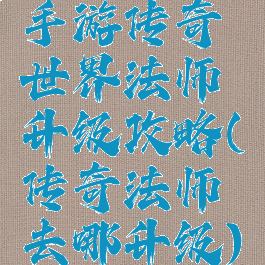 手游传奇
世界法师
升级攻略(
传奇法师
去哪升级)